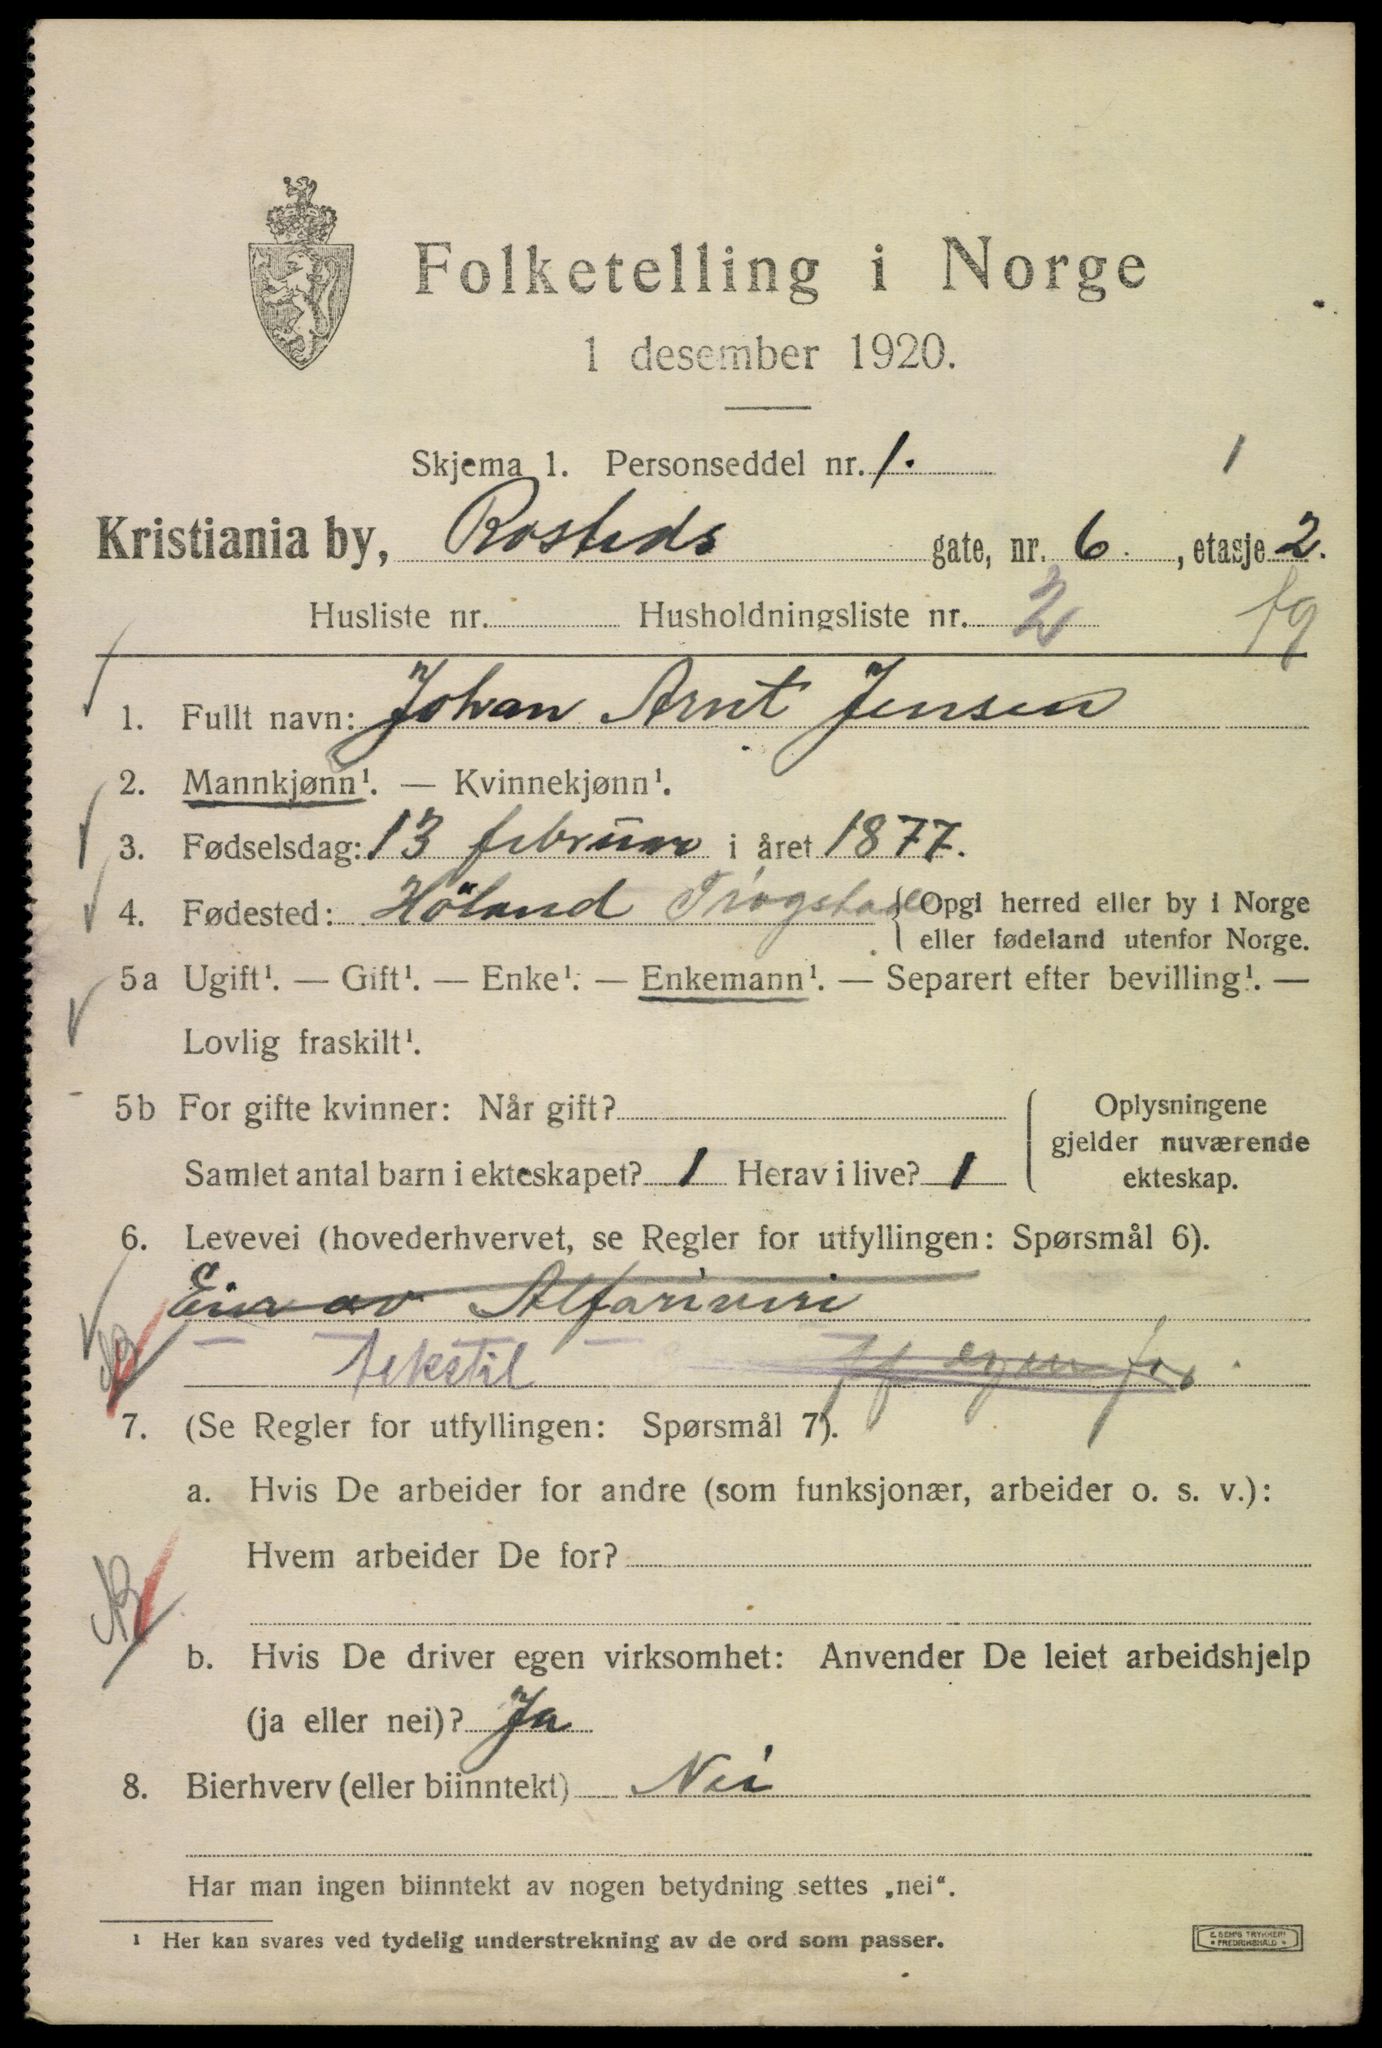 Folketelling i Norge
1 desember 1920.
Skjema 1. Personseddel nr. 1. 1
Kristiania by, Rosteds gate, nr. 6., etasje 2.
Husliste nr. Husholdningsliste nr. 2
1. Fullt navn: Johan Arnt Jensen
2. Mannkjønn¹. — Kvinnekjønn¹.
3. Fødselsdag: 13 februar i året 1877.
4. Fødested: Höland Trøgstad { Opgi herred eller by i Norge
eller fødeland utenfor Norge.
5a Ugift¹. — Gift¹. — Enke¹. — Enkemann¹. — Separert efter bevilling¹. —
Lovlig fraskilt¹.
5b For gifte kvinner: Når gift?
Samlet antal barn i ekteskapet? 1 Herav i live? 1
Oplysningene
gjelder nuværende
ekteskap.
6. Levevei (hovederhvervet, se Regler for utfyllingen: Spørsmål 6).
Eier av
tekstil egen
7. (Se Regler for utfyllingen: Spørsmål 7).
a. Hvis De arbeider for andre (som funksjonær, arbeider o. s. v.):
Hvem arbeider De for?
b. Hvis De driver egen virksomhet: Anvender De leiet arbeidshjelp
(ja eller nei)? Ja
8. Bierhverv (eller biinntekt) Nei
Har man ingen biinntekt av nogen betydning settes „nei“.
¹ Her kan svares ved tydelig understrekning av de ord som passer.
E. SEM'S TRYKKERI
FREDRIKSHALD